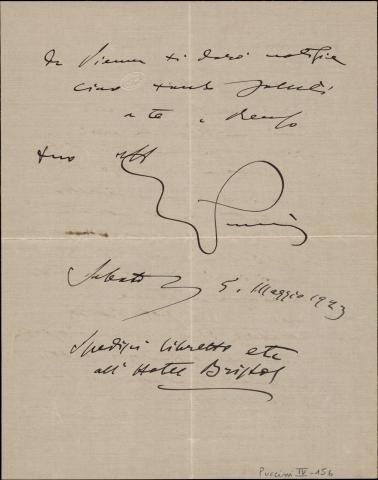 Da Vienna ti darò notizie
Ciao tanti saluti
a te e Renzo
tuo aff
Puccini
Sabato 5. Maggio 1923
Spedisci libretto etc
all' Hotel Bristol
Puccini IV-156